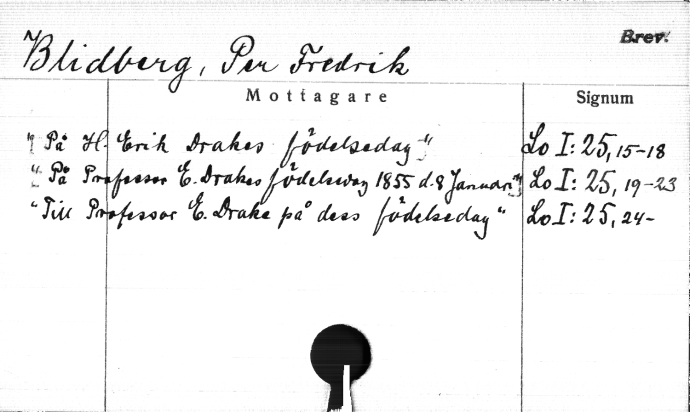 Brev.
Blidberg, Per Fredrik
Mottagare Signum
"På H. Erik Drakes födelsedag" Lo I: 25, 15-18
"På Professor E. Drakes födelsedag 1855 d. 8 Januari" Lo I: 25, 19-23
"Till Professor E. Drake på dess födelsedag" Lo I: 25, 24-